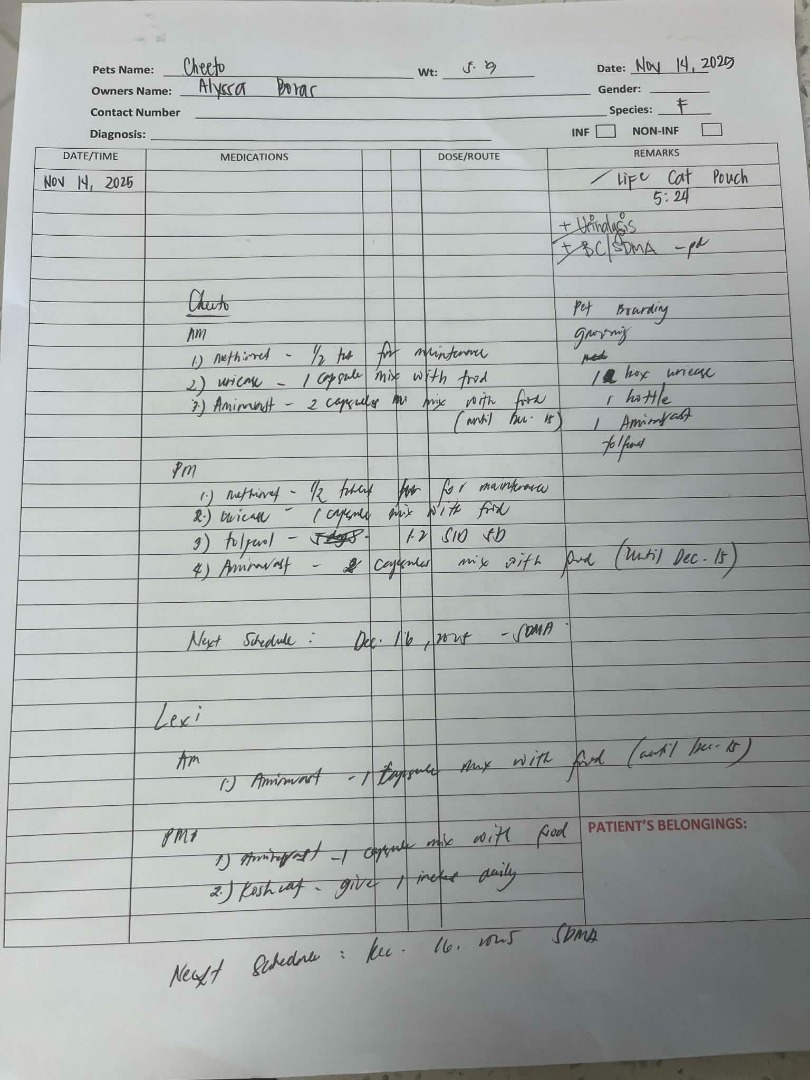 Pets Name: Cheeto Wt: 5.9 Date: Nov 14, 2025
Owners Name: Alyssa Gender:
Contact Number Species: F
Diagnosis: INF NON-INF
DATE/TIME MEDICATIONS DOSE/ROUTE REMARKS
Nov 14, 2025 / Life Cat Pouch
5:24
+ Urinalysis
+ BC/SDMA - pd
Cheeto Pet Boarding
AM grooming
1.) methiovet - 1/2 tab for maintenance
2.) uricase - 1 capsule mix with food 1 box uricase
3.) Aminavast - 2 capsules mix with food 1 bottle
(until Dec. 15) 1 Aminavast
tolfenol
PM
1.) methiovet - 1/2 tablet for maintenance
2.) uricase - 1 capsule mix with food
3) tolfenol - 5 days - 1.2 SID 5D
4.) Aminavast - 2 capsules mix with food (until Dec. 15)
Next Schedule : Dec. 16, 2025 - SDMA
Lexi
Am
1.) Aminavast - 1 capsule mix with food (until Dec. 15)
PM
1.) Aminavast - 1 capsule mix with food PATIENT'S BELONGINGS:
2.) - give 1 daily
Next Schedule : Dec. 16, 2025 SDMA